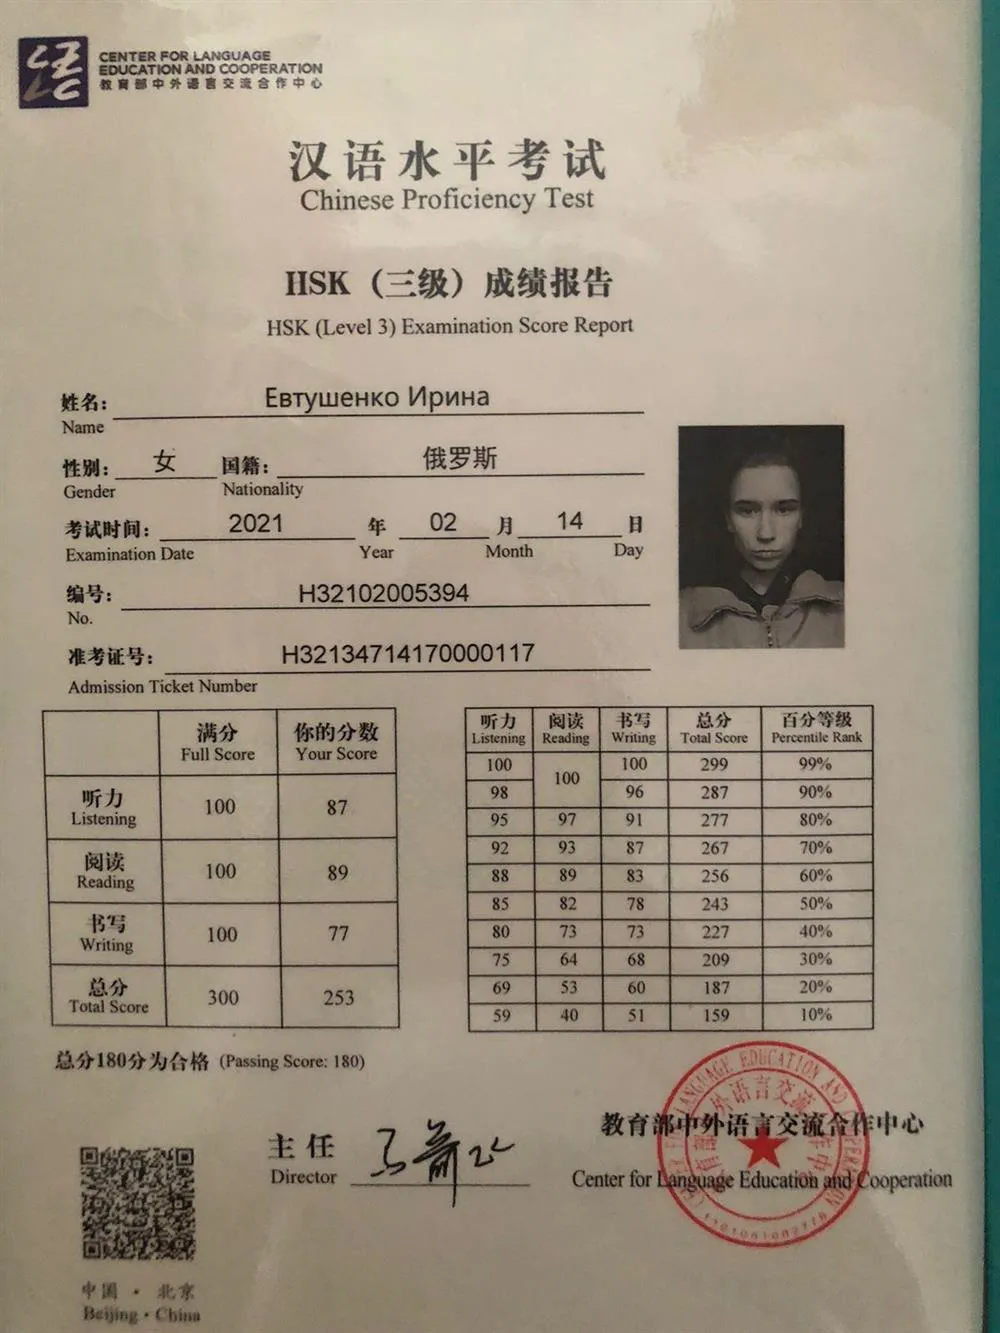 CENTER FOR LANGUAGE
EDUCATION AND COOPERATION
教育部中外语言交流合作中心
汉语水平考试
Chinese Proficiency Test
HSK（三级）成绩报告
HSK (Level 3) Examination Score Report
姓名: Евтушенко Ирина
Name
性别: 女 国籍: 俄罗斯
Gender Nationality
考试时间: 2021 年 02 月 14 日
Examination Date Year Month Day
编号: H32102005394
No.
准考证号: H32134714170000117
Admission Ticket Number
满分 你的分数
Full Score Your Score
听力 100 87
Listening
阅读 100 89
Reading
书写 100 77
Writing
总分 300 253
Total Score
听力 阅读 书写 总分 百分等级
Listening Reading Writing Total Score Percentile Rank
100 100 100 299 99%
98 96 287 90%
95 97 91 277 80%
92 93 87 267 70%
88 89 83 256 60%
85 82 78 243 50%
80 73 73 227 40%
75 64 68 209 30%
69 53 60 187 20%
59 40 51 159 10%
总分180分为合格 (Passing Score: 180)
主任
Director
教育部中外语言交流合作中心
Center for Language Education and Cooperation
中国·北京
Beijing·China